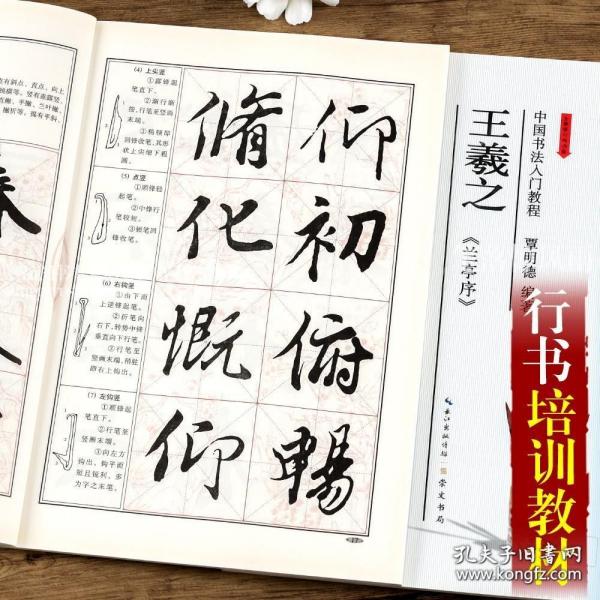 (4) 上尖竖
①露锋起
笔直下。
②渐行渐
按,行笔至
竖画末端。
③稍顿却
回锋收笔,其形
状上尖细下粗
圆。
(5) 点竖
①顺锋轻
起笔。
②中锋行
笔较短。
③提笔回
锋收笔。
(6) 右钩竖
①由下而
上逆锋起笔。
②折笔向
右下,转势中锋
垂直向下行笔。
③行笔至
竖画末端,稍驻
右上钩出。
(7) 左钩竖
①顺锋起
笔直下。
②行笔至
竖画末端。
③向左方
钩出,钩平而
短且锐利,多
为字之末笔。
仰初俯暢
脩化慨仰
17
中国书法入门教程 覃明德 编著
王羲之
《兰亭序》
长江出版传媒
崇文书局
行书培训教材
孔夫子旧书网
www.kongfz.com